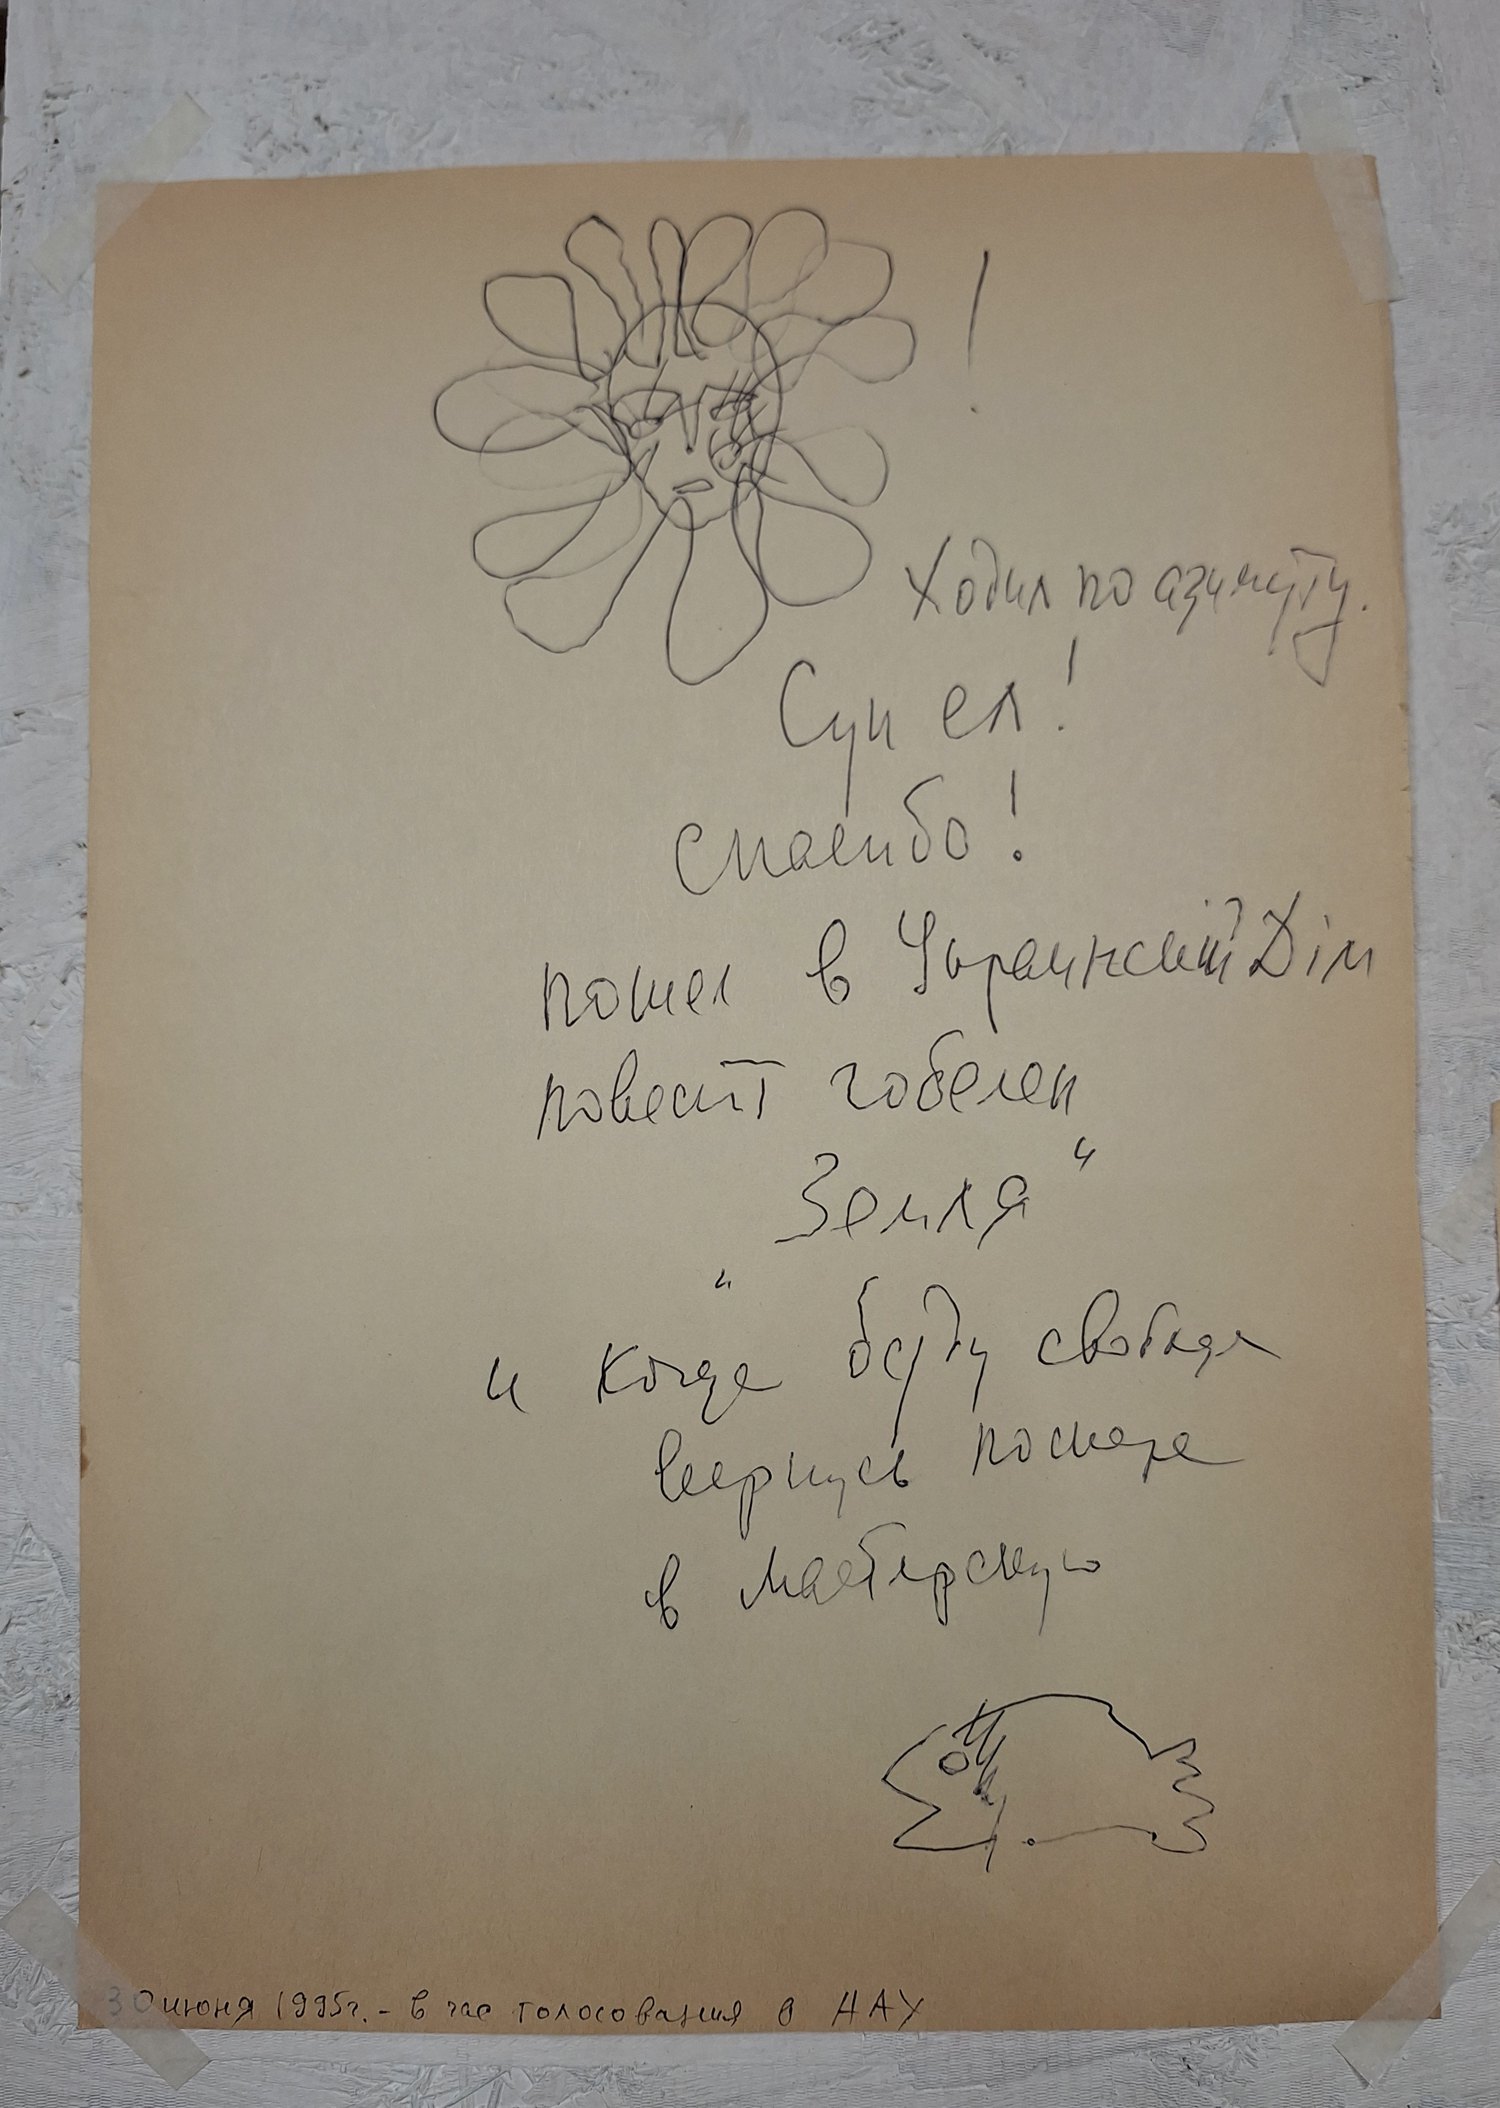 !
Ходил по азимуту.
Суп ел!
Спасибо!
пошел в Український Дім
повесит гобелен
"Земля"
и когда буду свободен
вернусь поскоре
в мастерскую
30 июня 1995г. - в час голосования в НАУ